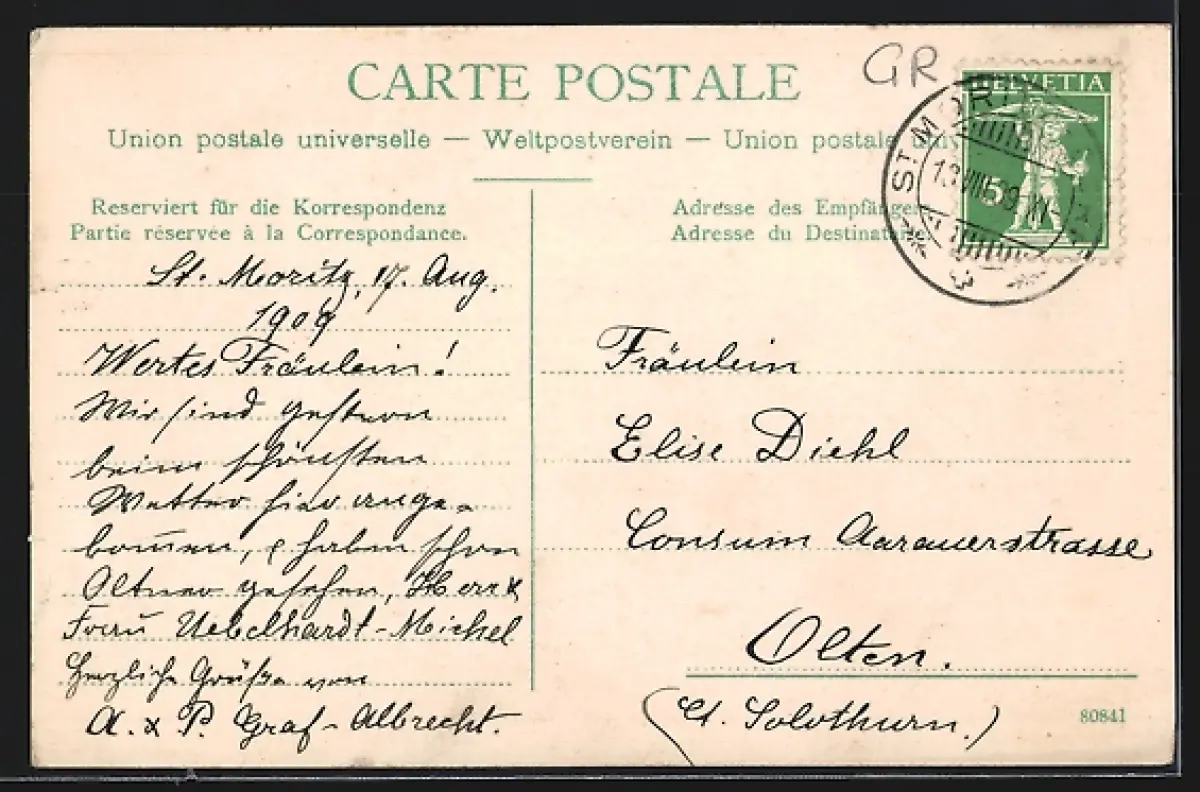 CARTE POSTALE
GR
HELVETIA
Union postale universelle — Weltpostverein — Union postale
ST. MORITZ
13.VIII.09
5
Reserviert für die Korrespondenz
Partie réservée à la Correspondance.
Adresse des Empfängers
Adresse du Destinataire.
St. Moritz, 17. Aug.
1909
Wertes Fräulein!
Wir sind gestern
beim schönsten
Wetter hier ange-
kommen, & haben schon
Oltner gesehen, Herr &
Frau Uebelhardt-Michel
Herzliche Grüße von
A. & P. Graf-Albrecht.
Fräulein
Elise Diehl
Consum Aarauerstrasse
Olten.
(Ct. Solothurn.)
80841